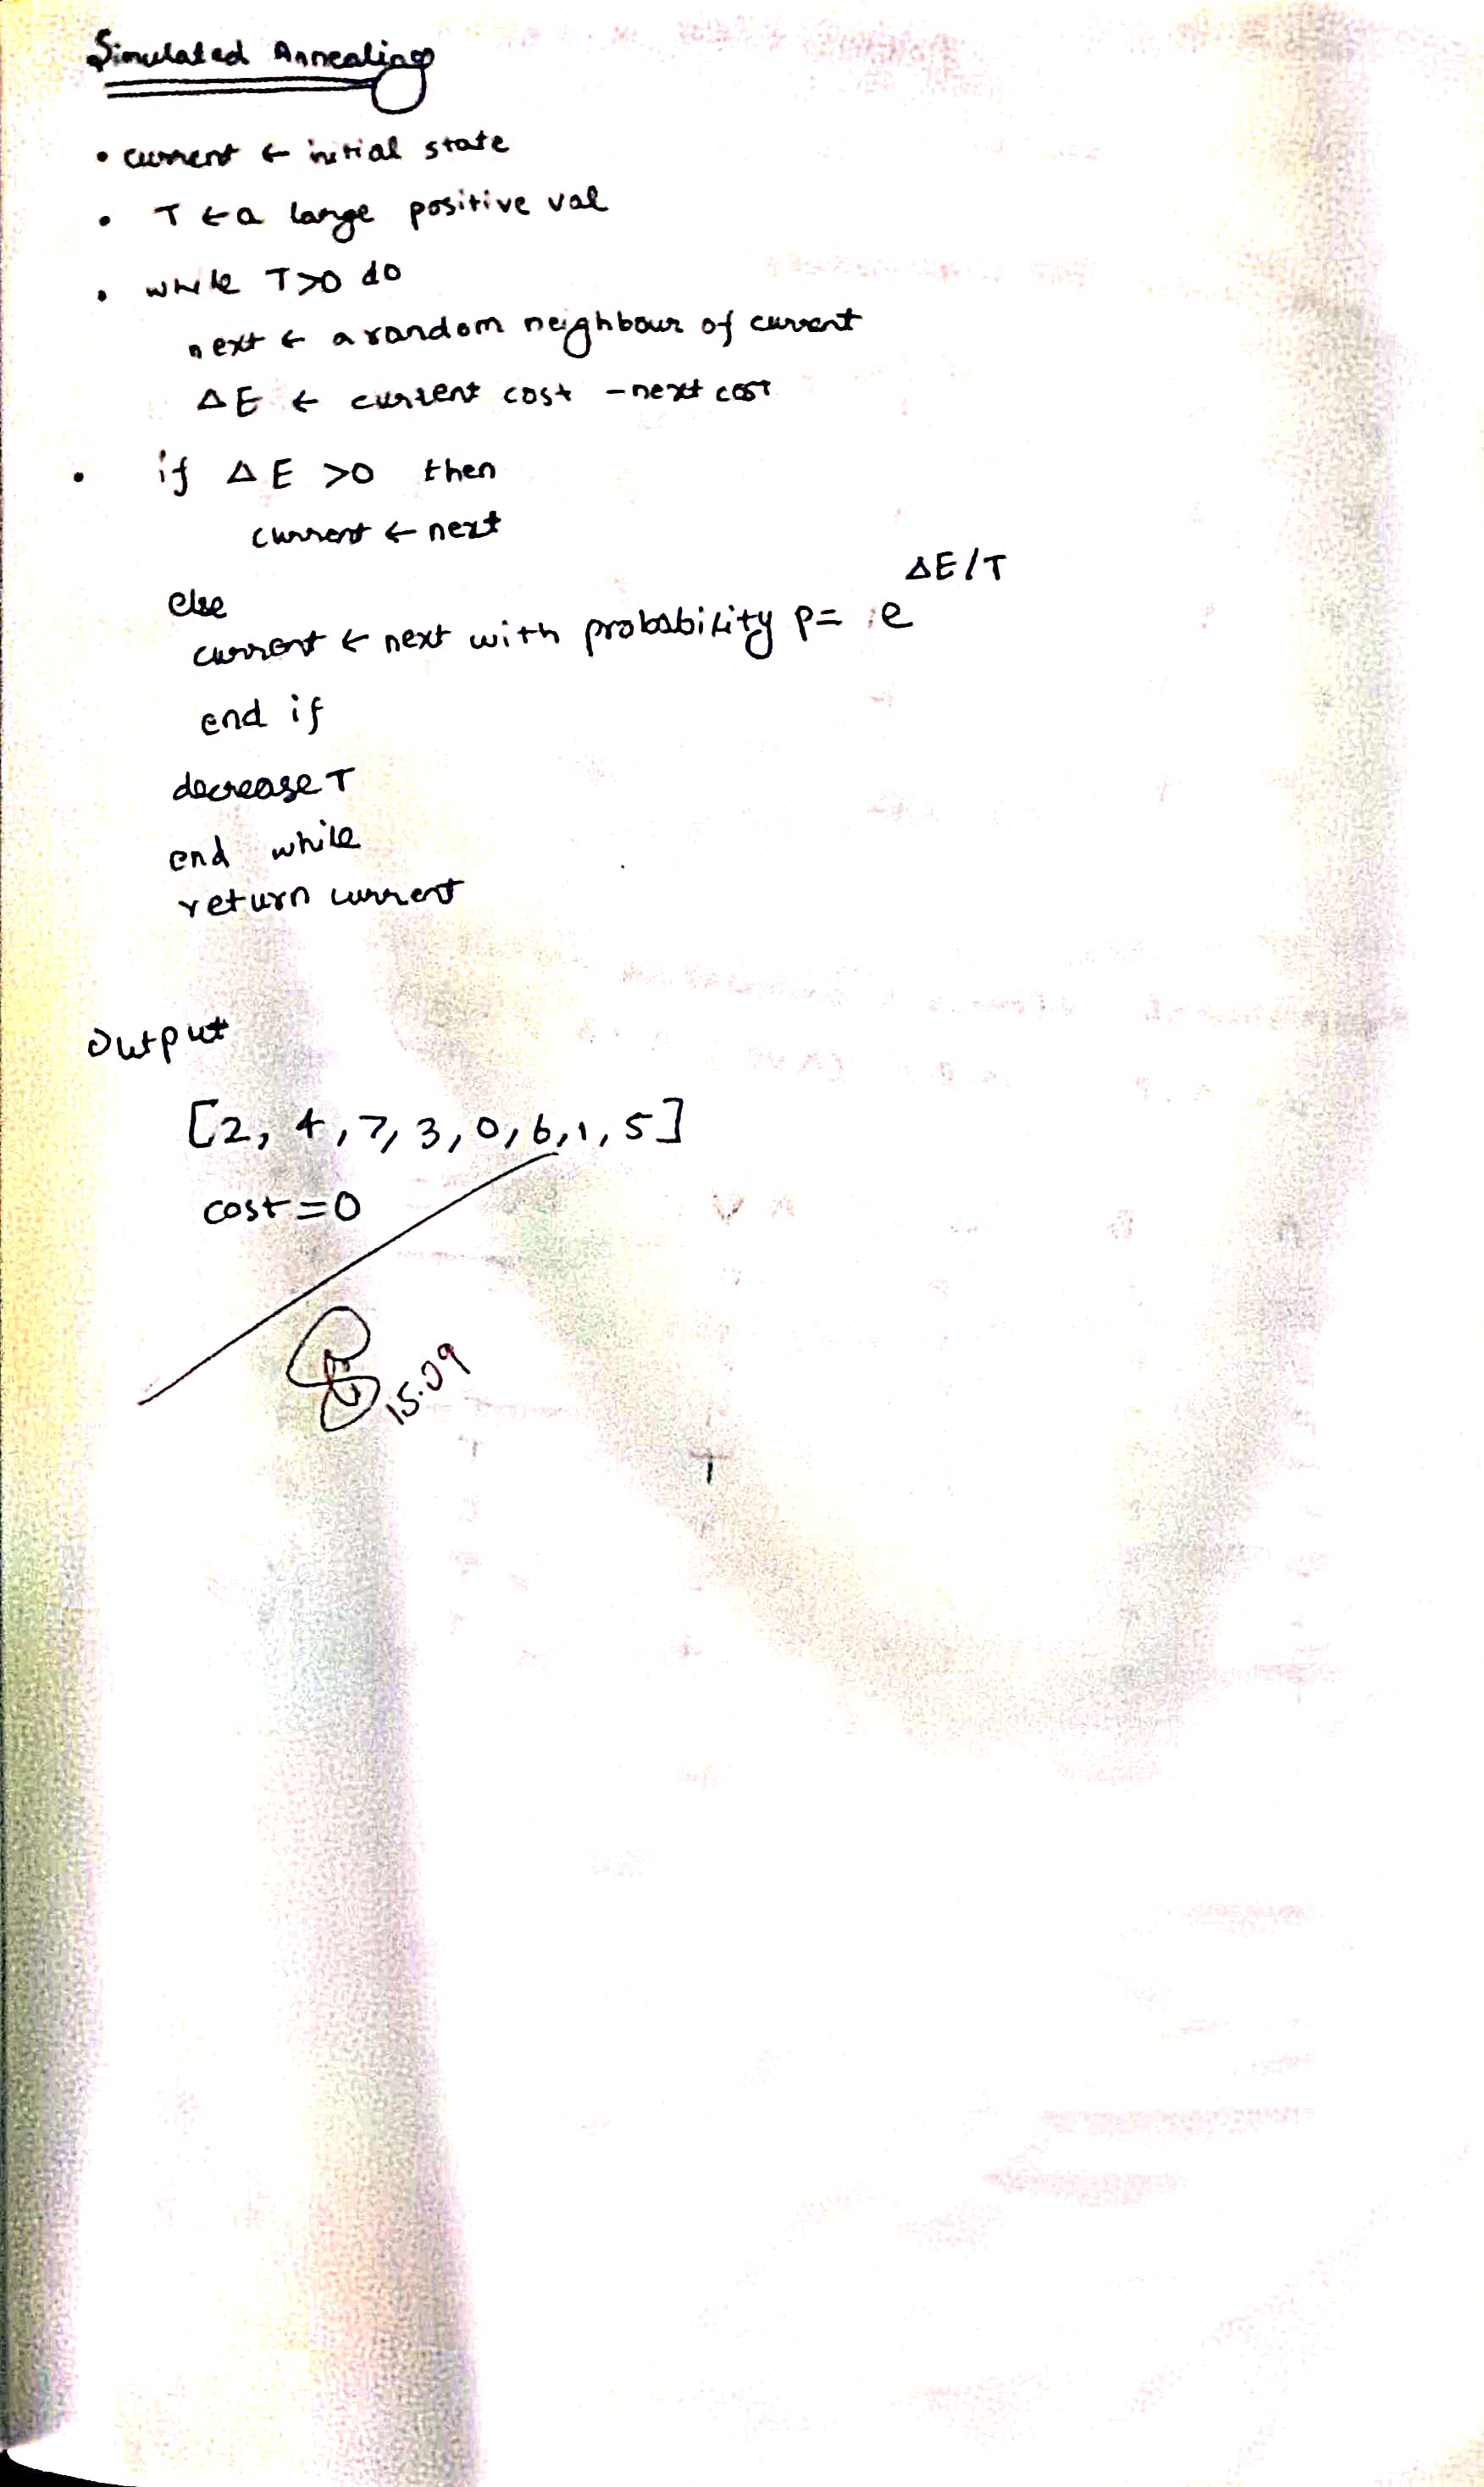 Simulated Annealing
• current ← initial state
• T ← a large positive val
• while T>0 do
next ← a random neighbour of current
ΔE ← current cost - next cost
• if ΔE >0 then
current ← next
else
current ← next with probability p= e^ΔE/T
end if
decrease T
end while
return current
Output
[2, 4, 7, 3, 0, 6, 1, 5]
cost = 0
15.09